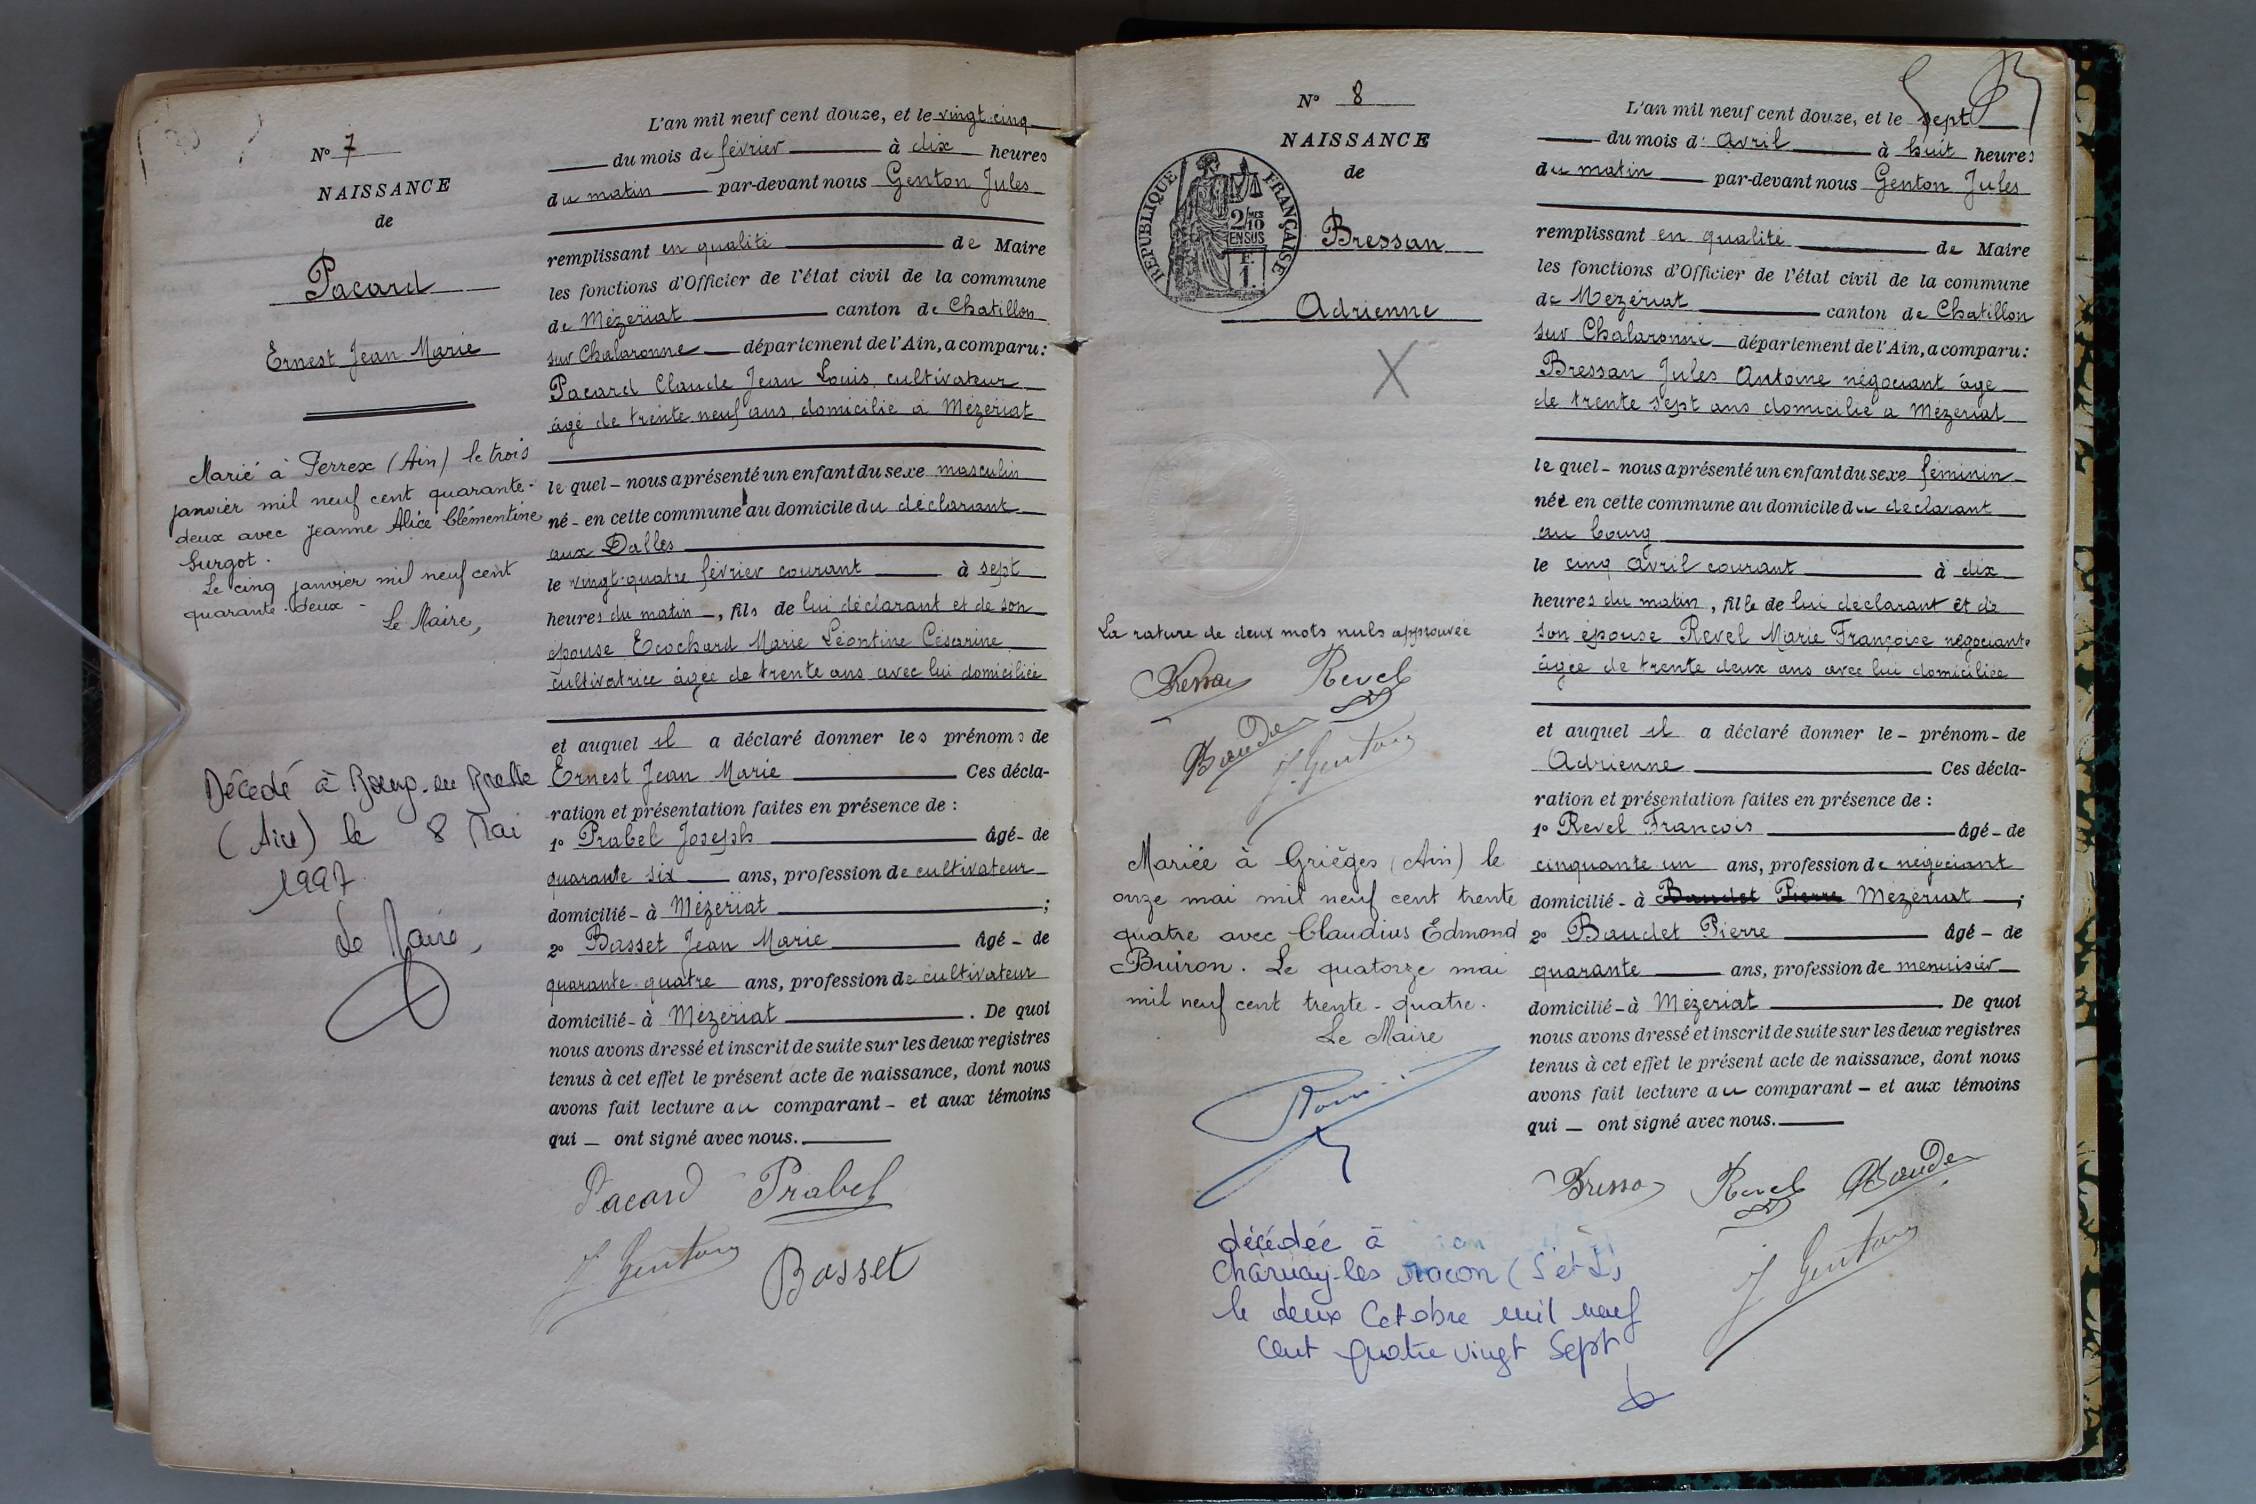 N° 7
NAISSANCE
de
Pacard
Ernest Jean Marie
Marié à Perrex (Ain) le trois
janvier mil neuf cent quarante-
deux avec Jeanne Alice Clémentine
Surgot.
Le cinq janvier mil neuf cent
quarante-deux -
Le Maire,
Décédé à Bourg-en-Bresse
(Ain) le 8 Mai
1997
Le Maire,
L'an mil neuf cent douze, et le vingt-cinq
du mois de février à dix heures
du matin par-devant nous Genton Jules
remplissant en qualité de Maire
les fonctions d'Officier de l'état civil de la commune
de Mézériat canton de Chatillon
sur Chalaronne département de l'Ain, a comparu:
Pacard Claude Jean Louis, cultivateur
âgé de trente-neuf ans, domicilié à Mézériat
lequel - nous a présenté un enfant du sexe masculin
né - en cette commune au domicile du déclarant
aux Dalles
le vingt-quatre février courant à sept
heures du matin, fils de lui déclarant et de son
épouse Ecochard Marie Léontine Césarine
cultivatrice âgée de trente ans avec lui domiciliée
et auquel il a déclaré donner les prénoms de
Ernest Jean Marie Ces décla-
ration et présentation faites en présence de :
1° Prabel Joseph âgé - de
quarante six ans, profession de cultivateur
domicilié - à Mézériat ;
2° Basset Jean Marie âgé - de
quarante-quatre ans, profession de cultivateur
domicilié - à Mézériat . De quoi
nous avons dressé et inscrit de suite sur les deux registres
tenus à cet effet le présent acte de naissance, dont nous
avons fait lecture au comparant - et aux témoins
qui - ont signé avec nous.
Pacard Prabel
J. Genton Basset
N° 8
NAISSANCE
de
RÉPUBLIQUE FRANÇAISE
2/10MES
EN SUS
F.
1.
Bressan
Adrienne
X
La rature de deux mots nuls approuvée
Bressan Revel
Baudet
J. Genton
Mariée à Grièges (Ain) le
onze mai mil neuf cent trente
quatre avec Claudius Edmond
Buiron. Le quatorze mai
mil neuf cent trente-quatre.
Le Maire
décédée à
Charnay-les macon (S et L)
le deux Octobre mil neuf
cent quatre vingt Sept
L'an mil neuf cent douze, et le sept
du mois d' Avril à huit heures
du matin par-devant nous Genton Jules
remplissant en qualité de Maire
les fonctions d'Officier de l'état civil de la commune
de Mézériat canton de Chatillon
sur Chalaronne département de l'Ain, a comparu:
Bressan Jules Antoine négociant âgé
de trente sept ans domicilié à Mézériat
lequel - nous a présenté un enfant du sexe féminin
née en cette commune au domicile du déclarant
au bourg
le cinq Avril courant à dix
heures du matin, fille de lui déclarant et de
son épouse Revel Marie Françoise négociante
âgée de trente deux ans avec lui domiciliée
et auquel il a déclaré donner le - prénom - de
Adrienne Ces décla-
ration et présentation faites en présence de :
1° Revel François âgé - de
cinquante un ans, profession de négociant
domicilié - à Baudet Pierre Mézériat ;
2° Baudet Pierre âgé - de
quarante ans, profession de menuisier
domicilié - à Mézériat De quoi
nous avons dressé et inscrit de suite sur les deux registres
tenus à cet effet le présent acte de naissance, dont nous
avons fait lecture au comparant - et aux témoins
qui - ont signé avec nous.
Bressan Revel Baudet
J. Genton